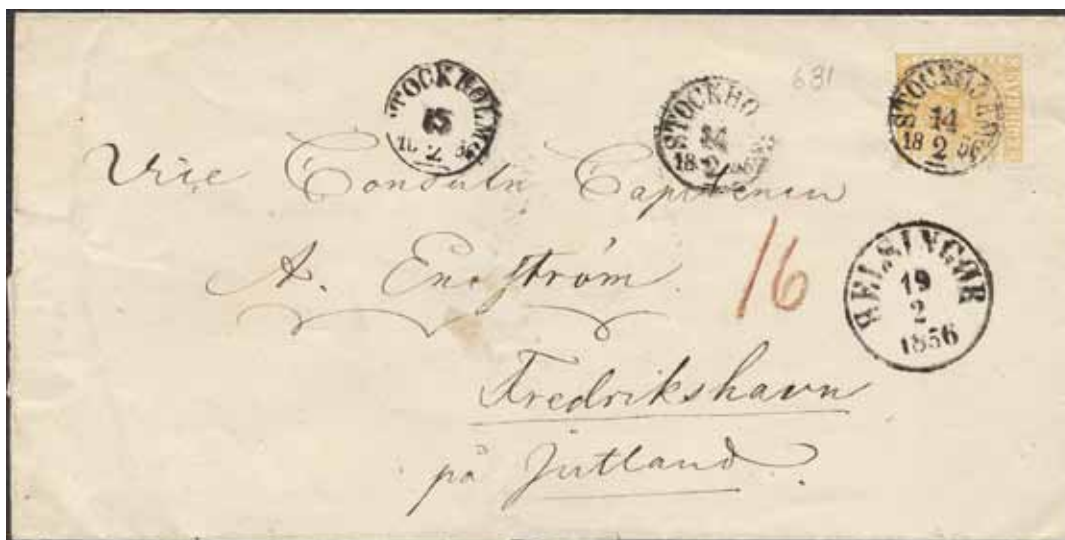 STOCKHOLM
15
2
STOCKHO
14
18 2 56
631
STOCKHOLM
14
18 2 56
Vice Consuln Capitenen
A. Engström
16
HELSINGØR
19
2
1856
Fredrikshavn
på Jutland